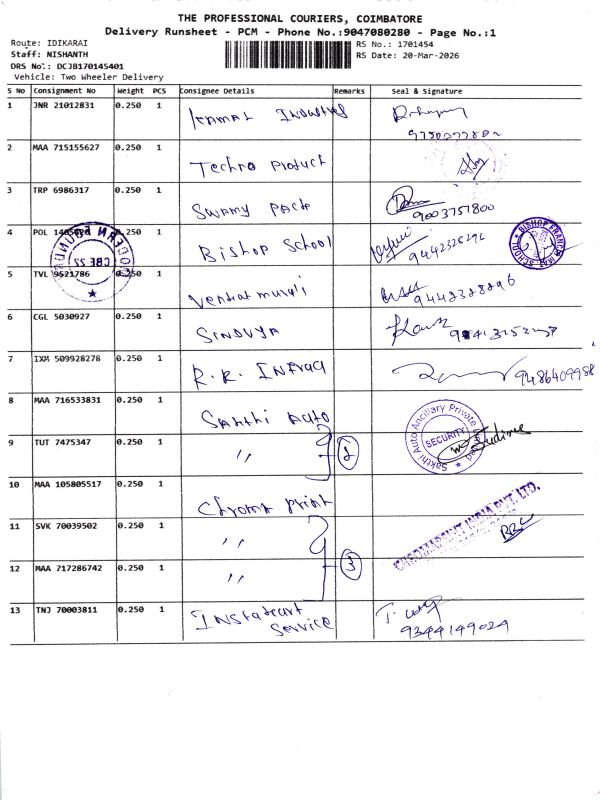 THE PROFESSIONAL COURIERS, COIMBATORE
Delivery Runsheet - PCM - Phone No.:9047080280 - Page No.:1
Route: IDIKARAI
Staff: NISHANTH
DRS No.: DCJB170145401
Vehicle: Two Wheeler Delivery
RS No.: 1701454
RS Date: 20-Mar-2026
S No Consignment No Weight PCS Consignee Details Remarks Seal & Signature
1 JNR 21012831 0.250 1 Kamal Industries
2 MAA 715155627 0.250 1 Techno Product
3 TRP 6986317 0.250 1 Swamy Pack 9003757800
4 POL 0.250 1 Bishop School 9442326296
5 TVL 9521786 0.250 1 Venkat murali
6 CGL 5030927 0.250 1 SINDUYA
7 IXM 509928278 0.250 1 R.R. INFRAA 9486409988
8 MAA 716533831 0.250 1 Sakthi Auto
Sakthi Auto Ancillary Private
SECURITY
9 TUT 7475347 0.250 1 〃 2
10 MAA 105805517 0.250 1 Chroma print
CHROMAPRINT INDIA PVT. LTD.
11 SVK 70039502 0.250 1 〃
12 MAA 717286742 0.250 1 〃 3
13 TNJ 70003811 0.250 1 INStakart
Service 9344149029